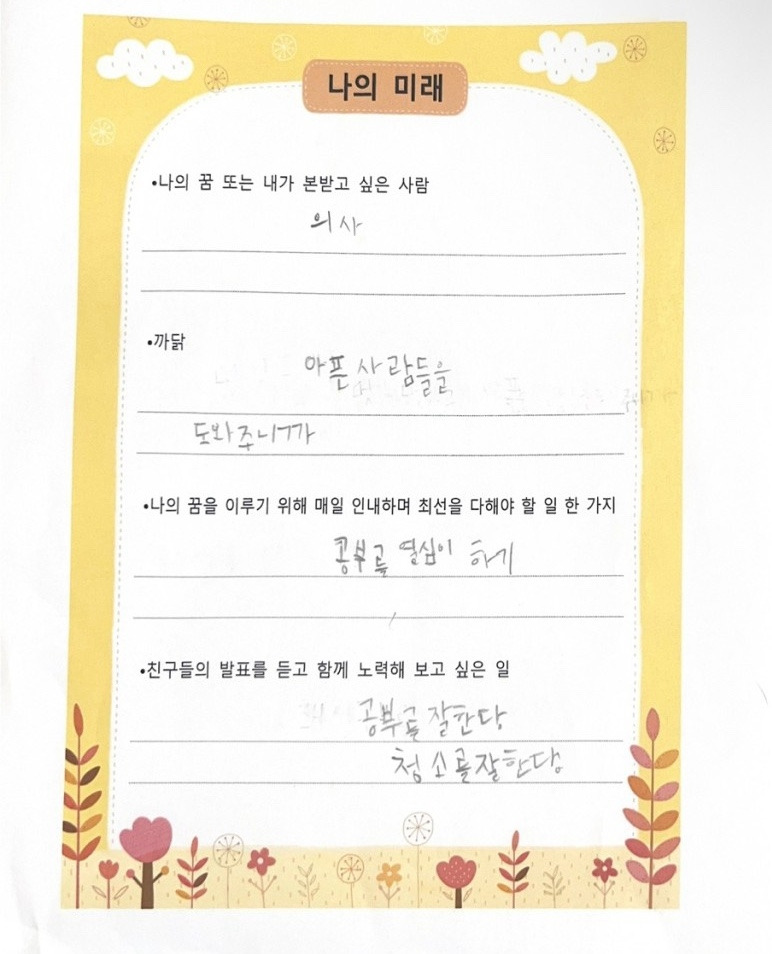 나의 미래
•나의 꿈 또는 내가 본받고 싶은 사람
의사
•까닭
아픈 사람들을
도와주니까
•나의 꿈을 이루기 위해 매일 인내하며 최선을 다해야 할 일 한 가지
공부를 열심이 하기
•친구들의 발표를 듣고 함께 노력해 보고 싶은 일
공부를 잘한당
청소를 잘한당